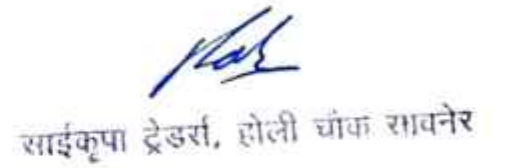 साईकृपा ट्रेडर्स, होली चौक सावनेर